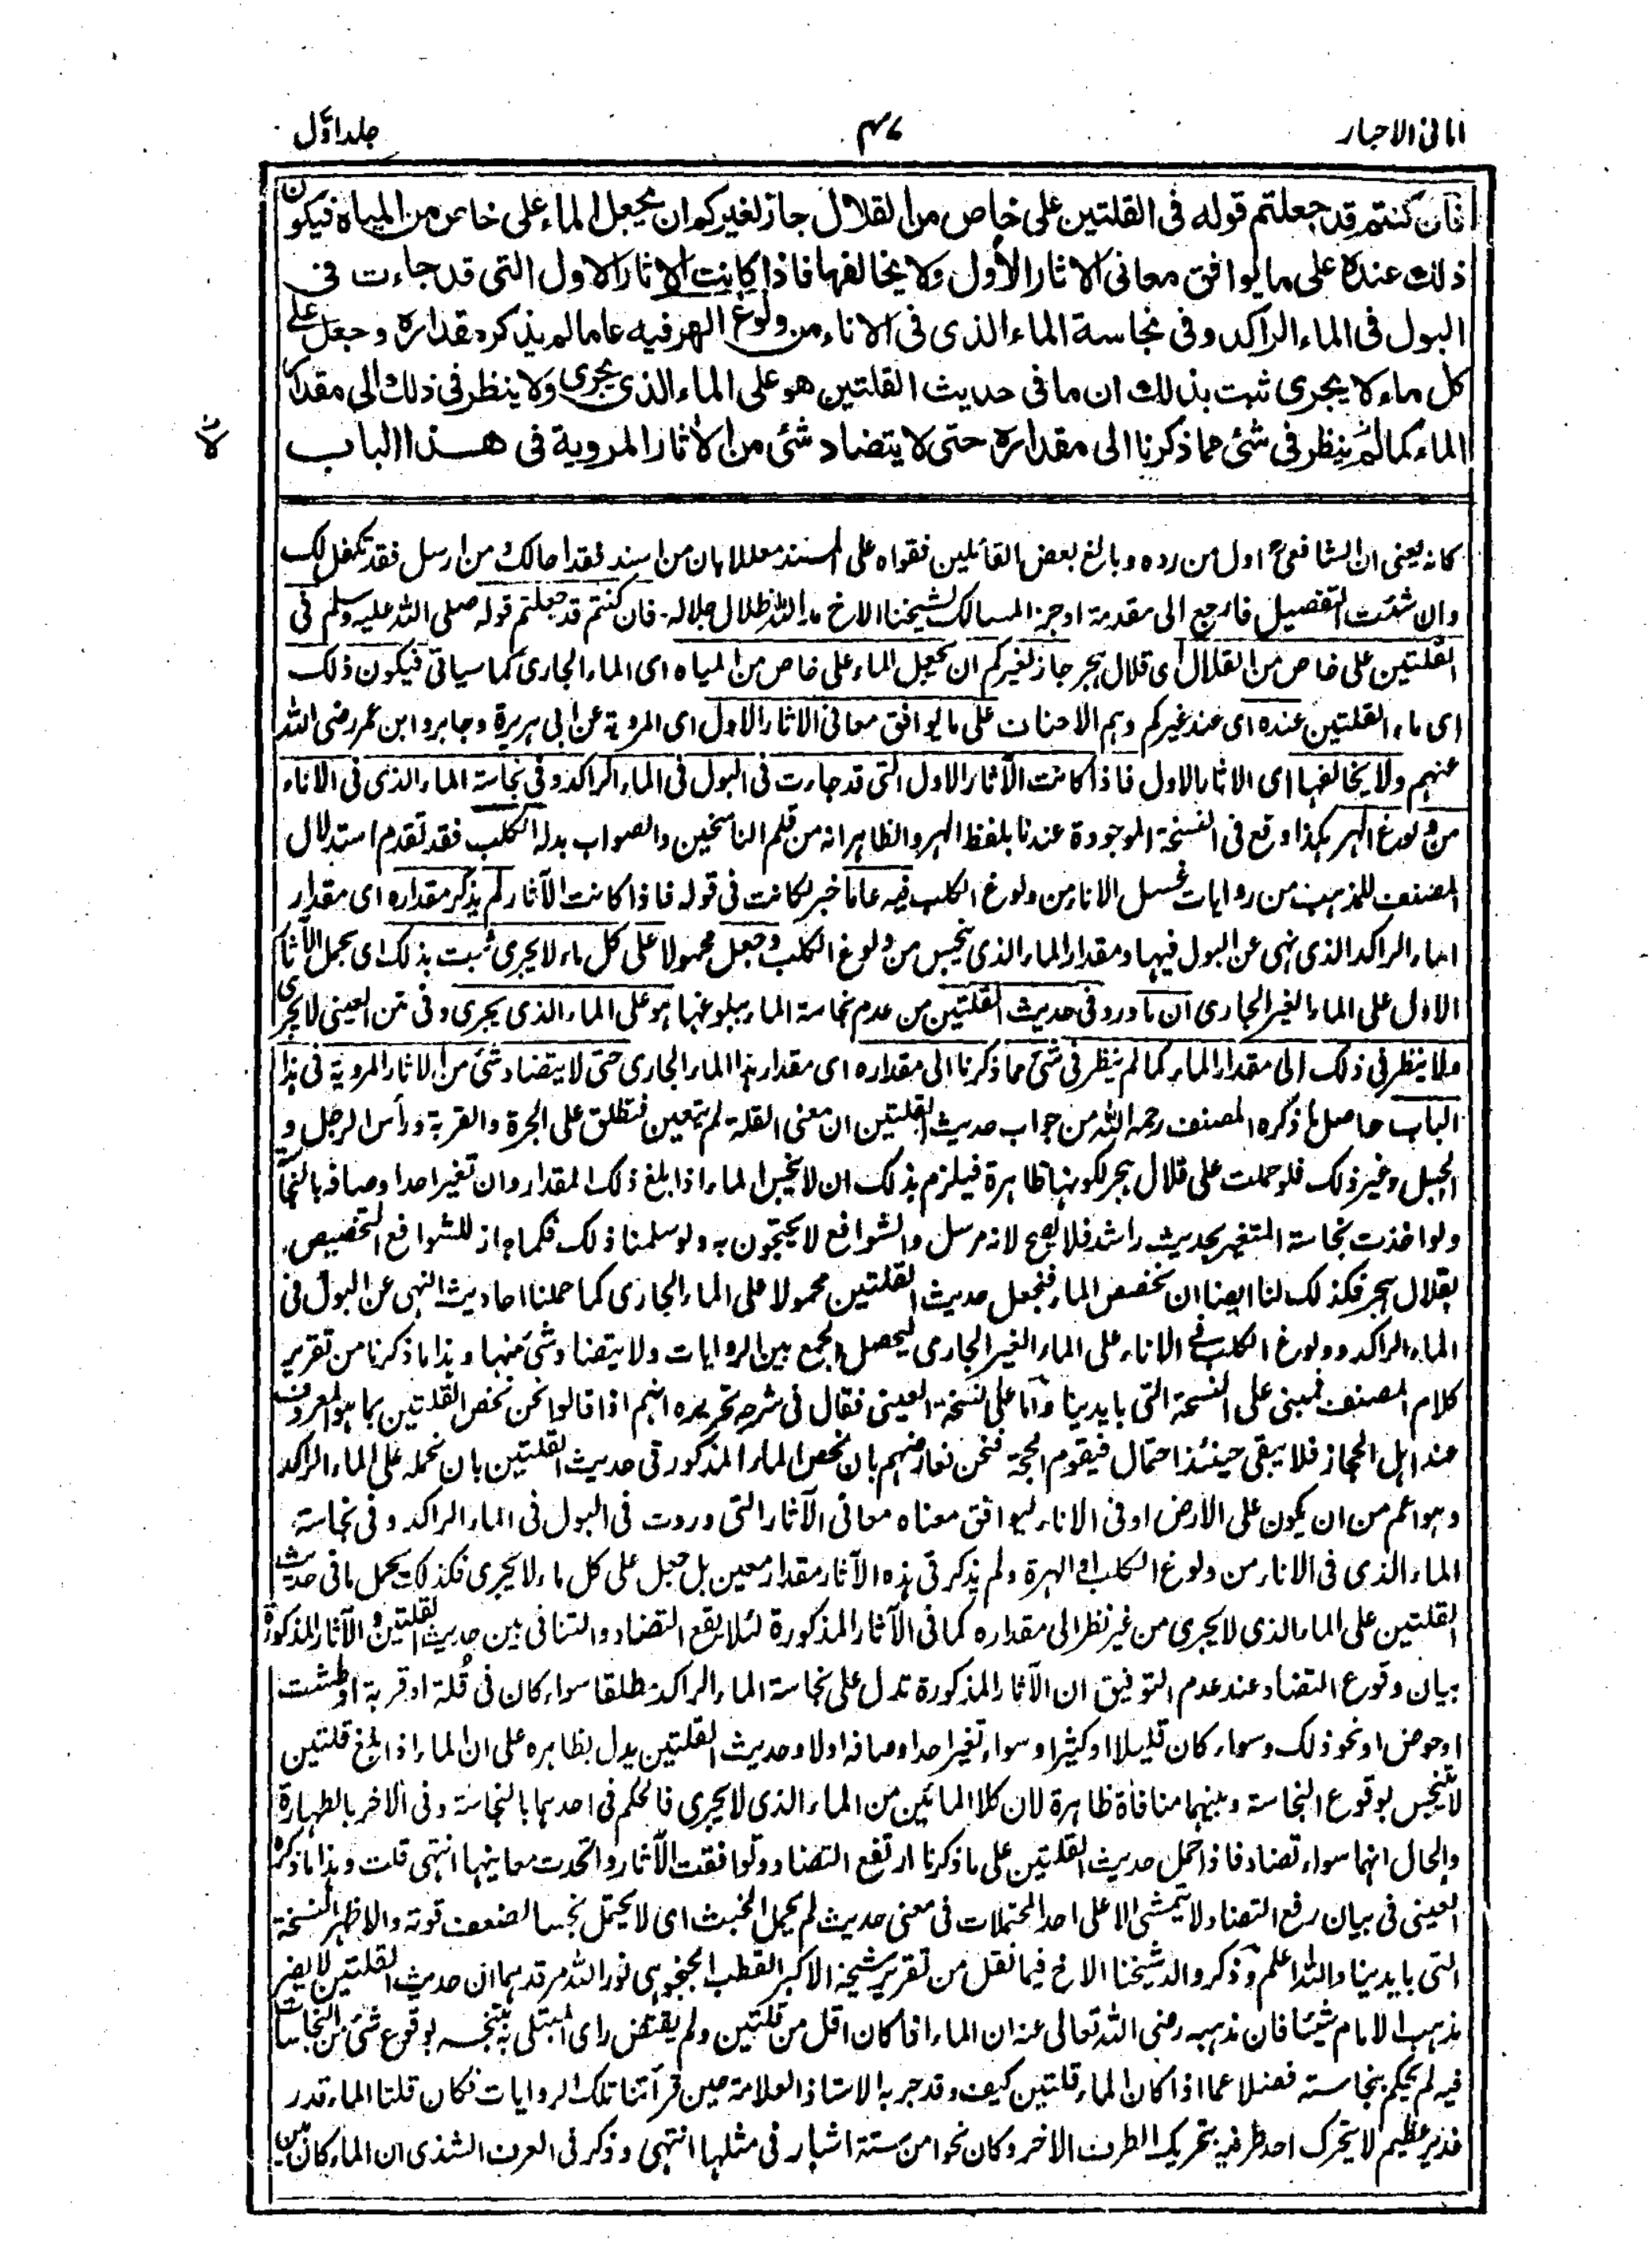 امانی الاحبار
۴۷
جلد اوّل
فان كنتم قد جعلتم قوله فى القلتين على خاص من القلال جاز لغيركم ان يجعل الماء على خاص من المياه فيكون
ذلك عنده على ما يوافق معانى الاثار الأول ولا يخالفها فاذا كانت الاثار الاول التى قد جاءت فى
البول فى الماء الراكد وفى نجاسة الماء الذى فى الاناء من ولوغ الهر فيه عاما لم يذكر مقداره وجعل على
كل ماء لا يجرى ثبت بذلك ان ما فى حديث القلتين هو على الماء الذى يجرى ولا ينظر فى ذلك الى مقدار
الماء كما لم ينظر فى شئ مما ذكرنا الى مقداره حتى لا يتضاد شئ من الأثار المروية فى هذا الباب
لا
كانه يعنى ان الشافعىؒ اول من رده وبالغ بعض القائلين فقواه على المسند معللا بان من اسند فقد احالك ومن ارسل فقد تكفل لك
وان شئت التفصيل فارجع الى مقدمة اوجز المسالك لشيخنا الاخ مد الله ظلال جلاله۔ فان كنتم قد جعلتم قوله صلى الله عليه وسلم فى
القلتين على خاص من القلال اى قلال هجر جاز لغيركم ان يجعل الماء على خاص من المياه اى الماء الجارى كما سياتى فيكون ذلك
اى ماء القلتين عنده اى عند غيركم وهم الاحناف على ما يوافق معانى الاثار الاول اى المروية عن ابى هريرة وجابر وابن عمر رضى الله
عنهم ولا يخالفها اى الاثار الاول فاذا كانت الآثار الاول التى قد جاءت فى البول فى الماء الراكد وفى نجاسة الماء الذى فى الاناء
من ولوغ الهر هكذا وقع فى النسخة الموجودة عندنا بلفظ الهر والظاهر انه من قلم الناسخين والصواب بدله الكلب فقد تقدم استدلال
المصنف للمذهب من روايات غسل الاناء من ولوغ الكلب فيه عاما خبر لكانت فى قوله فاذا كانت الآثار لم يذكر مقداره اى مقدار
الماء الراكد الذى نهى عن البول فيها ومقدار الماء الذى يتنجس من ولوغ الكلب وجعل محمولا على كل ماء لا يجرى ثبت بذلك اى بحمل الآثار
الاول على الماء الغير الجارى ان ما ورد فى حديث القلتين من عدم نجاسة الماء ببلوغها هو على الماء الذى يجرى وفى متن العينى لا يجرى
ولا ينظر فى ذلك الى مقدار الماء كما لم ينظر فى شئ مما ذكرنا الى مقداره اى مقدار هذا الماء الجارى حتى لا يتضاد شئ من الاثار المروية فى هذا
الباب حاصل ما ذكره المصنف رحمه الله من جواب حديث القلتين ان معنى القلة لم يتعين فتطلق على الجرة والقربة ورأس الرجل و
الجبل وغير ذلك فلو حملت على قلال هجر لكونها ظاهرة فيلزم بذلك ان لا ينجس الماء اذا بلغ ذلك المقدار وان تغير احد اوصافه بالنجاسة
ولو اخذت نجاسة المتغير بحديث راشد فلا يصح لانه مرسل والشوافع لا يحتجون به ولو سلمنا ذلك فكما جاز للشوافع التخصيص
بقلال هجر فكذلك لنا ايضا ان نخصص الماء فنجعل حديث القلتين محمولا على الماء الجارى كما حملنا احاديث النهى عن البول فى
الماء الراكد وولوغ الكلب فى الاناء على الماء الغير الجارى ليحصل الجمع بين الروايات ولا يتضاد شئ منها وهذا ما ذكرنا من تقرير
كلام المصنف فمبنى على النسخة التى بايدينا واما على نسخة العينى فقال فى شرحه تحريره انهم اذا قالوا نحن نخص القلتين بما هو المعروف
عند اهل الحجاز فلا يبقى حينئذ احتمال فيقوم الحجة فنحن نعارضهم بان نخص الماء المذكور فى حديث القلتين بان نحمله على الماء الراكد
وهو اعم من ان يكون على الارض او فى الاناء ليوافق معناه معانى الآثار التى وردت فى البول فى الماء الراكد وفى نجاسة
الماء الذى فى الاناء من ولوغ الكلب او الهرة ولم يذكر فى هذه الآثار مقدار معين بل جعل على كل ماء لا يجرى فكذلك يحمل ما فى حديث
القلتين على الماء الذى لا يجرى من غير نظر الى مقداره كما فى الآثار المذكورة لئلا يقع التضاد والتنافى بين حديث القلتين والآثار المذكورة
بيان وقوع التضاد عند عدم التوفيق ان الآثار المذكورة تدل على نجاسة الماء الراكد مطلقا سواء كان فى قلة او قربة او طشت
او حوض او نحو ذلك وسواء كان قليلا او كثيرا وسواء تغير احد اوصافه اولا وحديث القلتين يدل بظاهره على ان الماء اذا بلغ قلتين
لا يتنجس بوقوع النجاسة وبينهما منافاة ظاهرة لان كلا المائين من الماء الذى لا يجرى فالحكم فى احدهما بالنجاسة وفى الاخر بالطهارة
والحال انهما سواء تضاد فاذا حمل حديث القلتين على ما ذكرنا ارتفع التضاد وتوافقت الآثار واتحدت معانيها انتهى قلت وهذا ما ذكره
العينى فى بيان رفع التضاد لا يتمشى الا على احد المحتملات فى معنى حديث لم يحمل الخبث اى لا يحتمل نجسا لضعف قوته والاظهر النسخة
التى بايدينا والله اعلم وذكر والد شيخنا الاخ فيما نقل من تقرير شيخه الاكبر القطب الجنجوهى نور الله مرقدهما ان حديث القلتين لا يضر
مذهب الامام شيئا فان مذهبه رضى الله تعالى عنه ان الماء اذا كان اقل من قلتين ولم يقتض راى المبتلى به بتنجسه بوقوع شئ من النجاسات
فيه لم يحكم بنجاسته فضلا عما اذا كان الماء قلتين كيف وقد جربه الاستاذ العلامة حين قرأتنا تلك الروايات فكان قلتا الماء قدر
غدير عظيم لا يتحرك احد طرفيه بتحريك الطرف الاخر وكان نحوا من ستة اشبار فى مثلها انتهى وذكر فى العرف الشذى ان الماء كان من